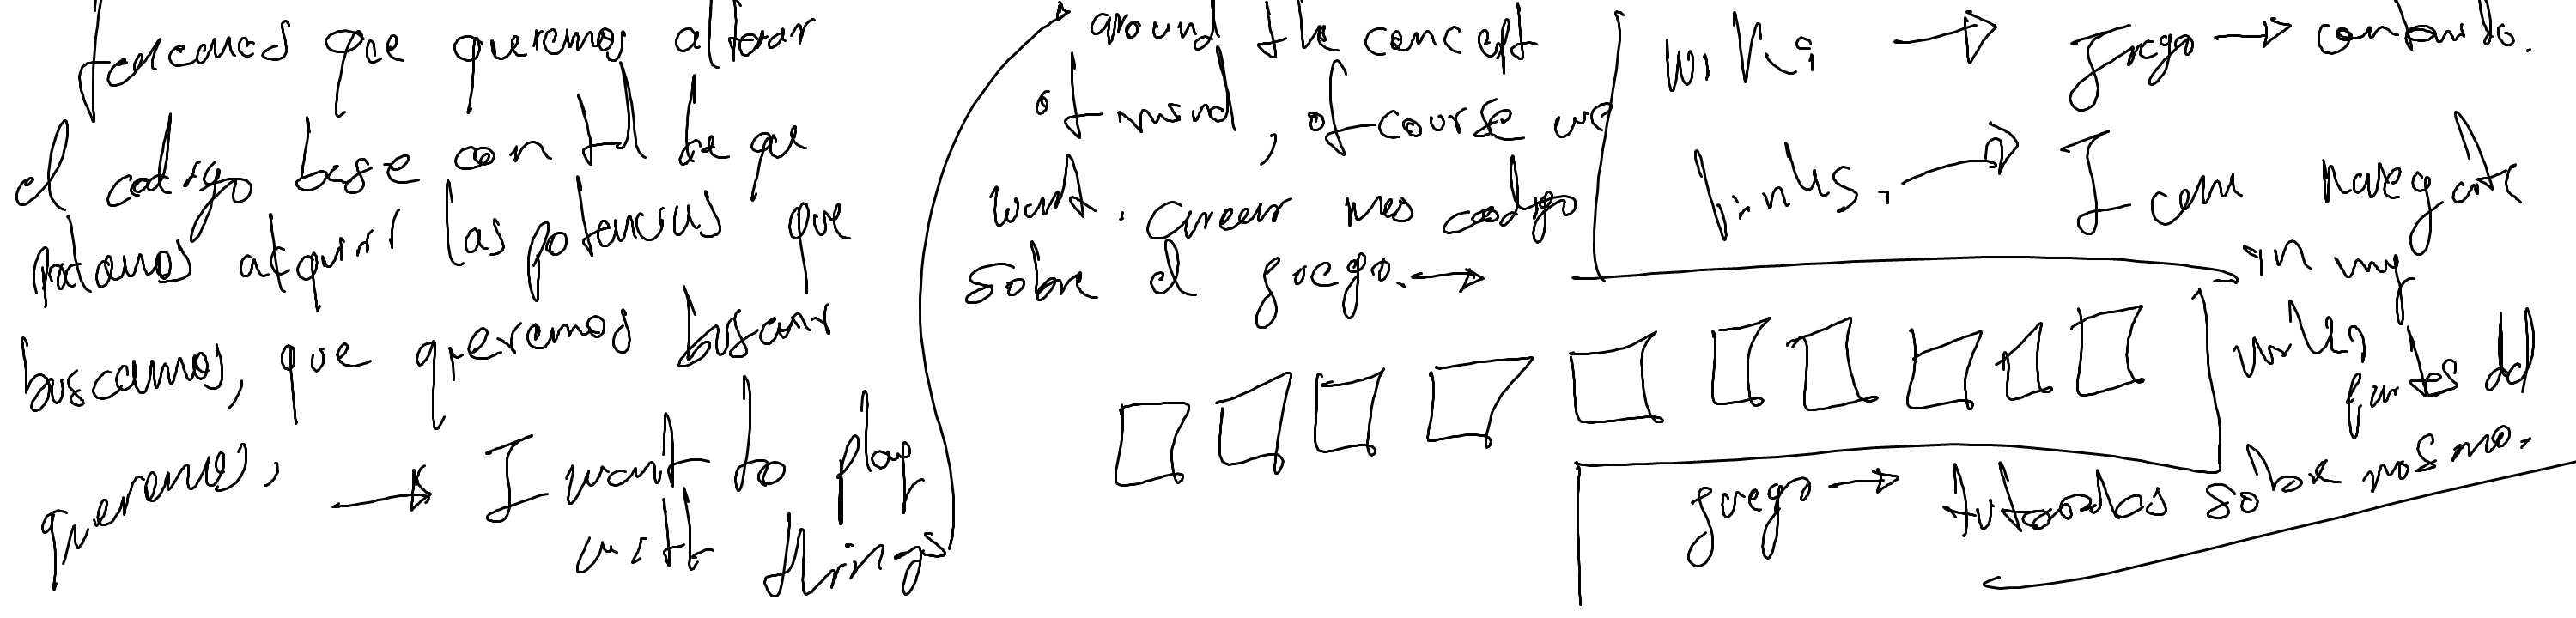 que queremos alterar
el codigo base con tal de que
podamos adquirir las potencias que
buscamos, que queremos buscar
queremos, → I want to play
with things
around the concept
of mind, of course we
want. creear mas codigo
sobre el juego. →
wiki → Juego → contenido.
links, → I can navegate
in my
wikis
partes del
juego → tutoriales sobre mismo.